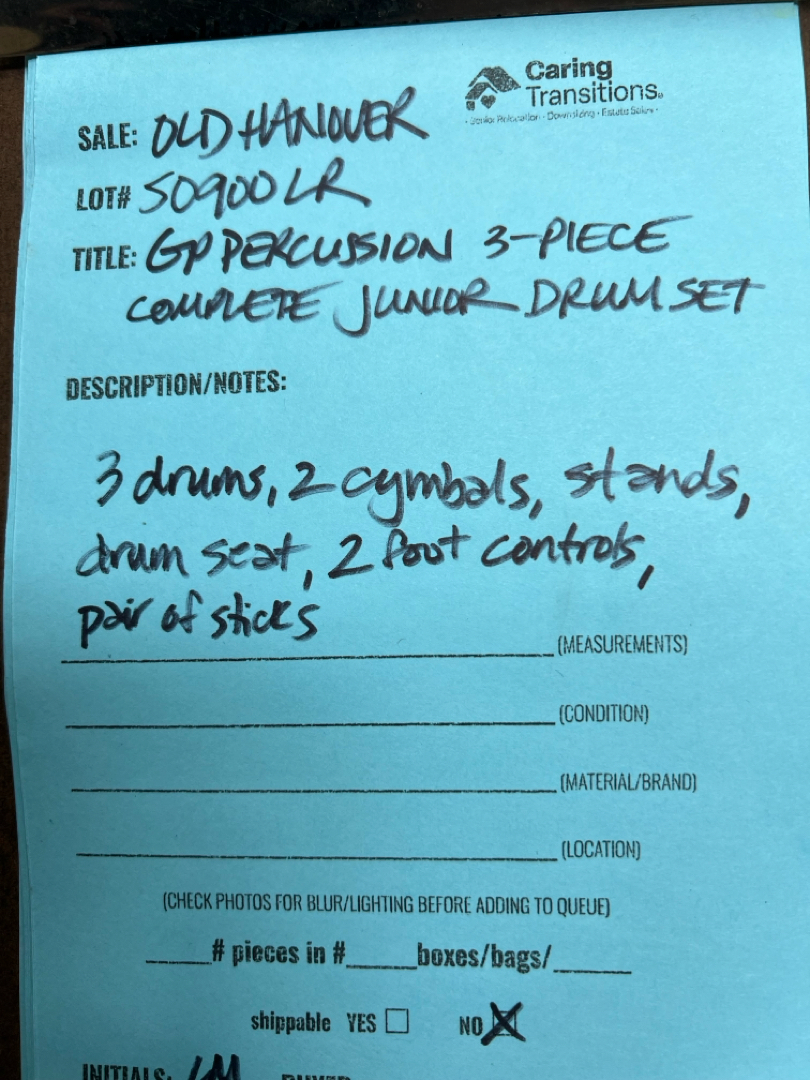 Caring
Transitions®
· Senior Relocation · Downsizing · Estate Sales ·
SALE: OLD HANOVER
LOT# 50900LR
TITLE: GP PERCUSSION 3-PIECE
COMPLETE JUNIOR DRUM SET
DESCRIPTION/NOTES:
3 drums, 2 cymbals, stands,
drum seat, 2 foot controls,
pair of sticks
(MEASUREMENTS)
(CONDITION)
(MATERIAL/BRAND)
(LOCATION)
(CHECK PHOTOS FOR BLUR/LIGHTING BEFORE ADDING TO QUEUE)
# pieces in # boxes/bags/
shippable YES NO
INITIALS: BUYER